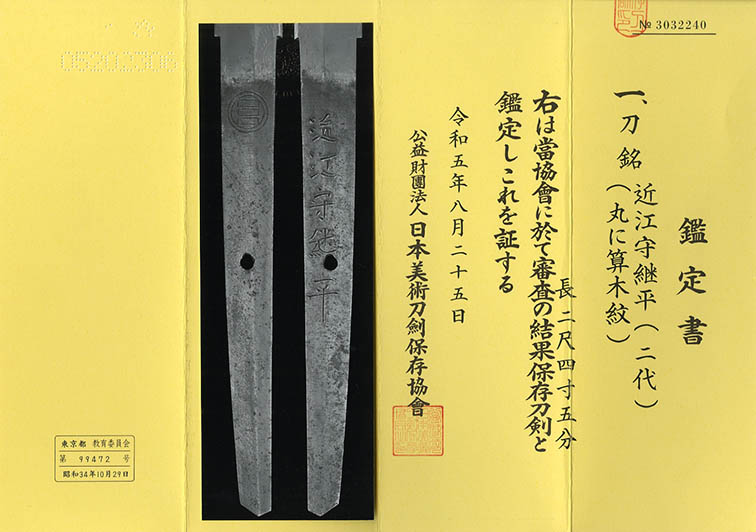 № 3032240
鑑定書
一、刀 銘 近江守継平(二代)
(丸に算木紋)
長二尺四寸五分
右は當協會に於て審査の結果保存刀剣と
鑑定しこれを証する
令和五年八月二十五日
公益財團法人 日本美術刀劍保存協會
近江守継平
東京都 教育委員会
第 99472 号
昭和34年10月29日